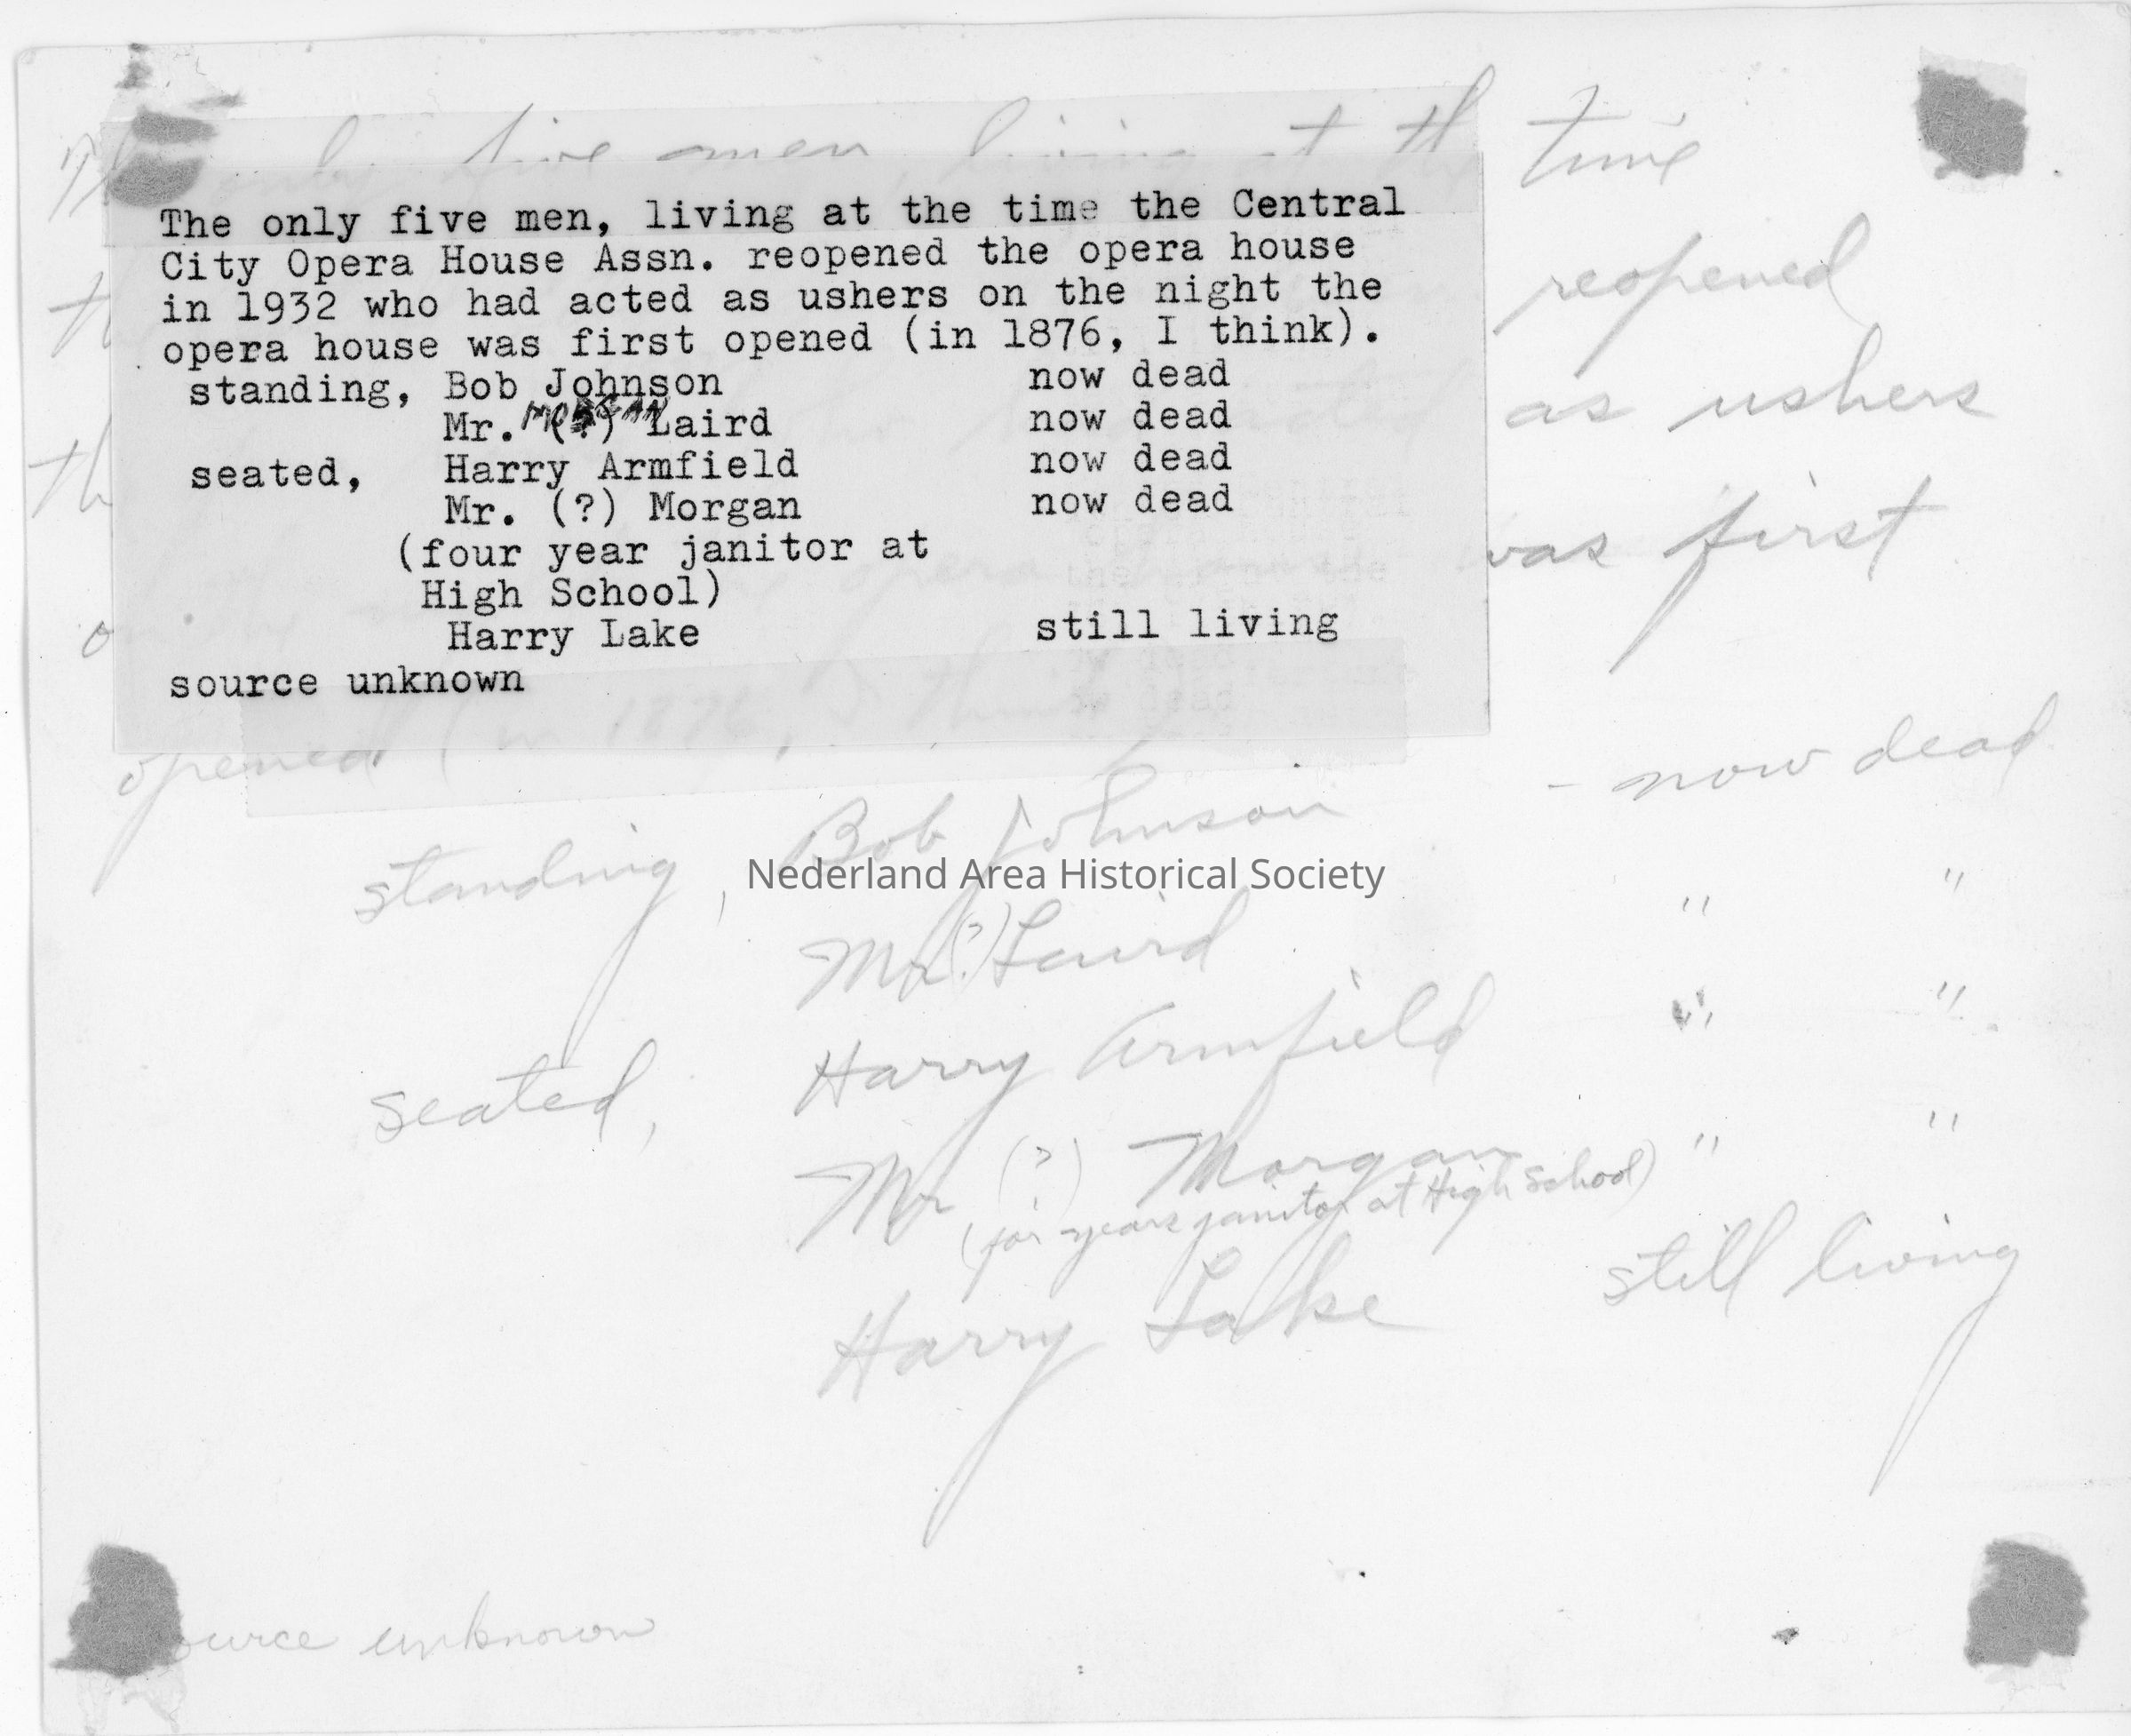 The only five men, living at the time
The only five men, living at the time the Central
City Opera House Assn. reopened the opera house
in 1932 who had acted as ushers on the night the
opera house was first opened (in 1876, I think).
standing, Bob Johnson now dead
Mr. MORGAN Laird now dead
seated, Harry Armfield now dead
Mr. (?) Morgan now dead
(four year janitor at
High School)
Harry Lake still living
source unknown
reopened
as ushers
was first
opened (in 1876, I think
standing, Bob Johnson - now dead
Nederland Area Historical Society
Mr. (?) Laird " "
seated, Harry Armfield " "
Mr (?) Morgan " "
(for years janitor at High School)
Harry Lake still living
source unknown